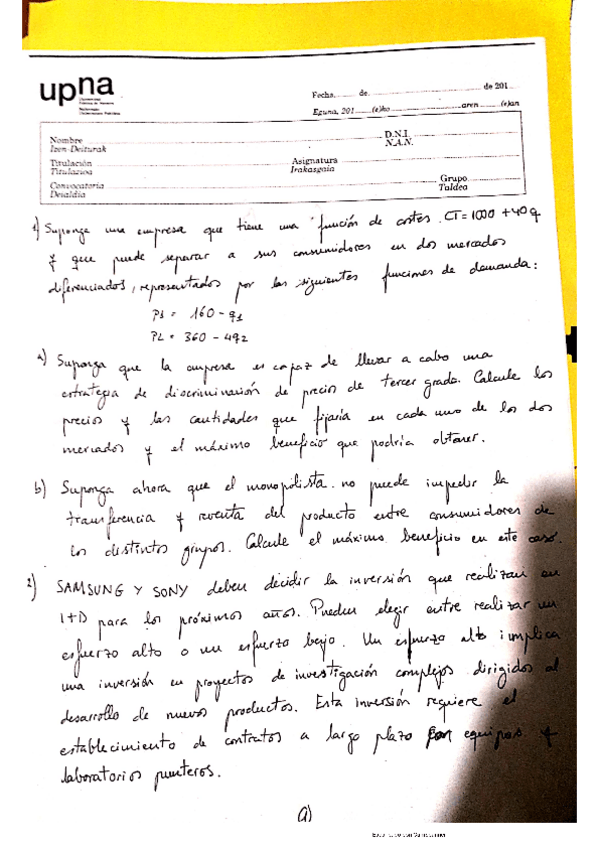 upna
Universidad
Pública de Navarra
Nafarroako
Unibertsitate Publikoa
Fecha ........ de ........ de 201
Eguna, 201 ...... (e)ko ........ aren ...... (e)an
Nombre ........ D.N.I. ........
Izen-Deiturak N.A.N.
Titulación ........ Asignatura ........
Titulazioa Irakasgaia
Convocatoria ........ Grupo ........
Deialdia Taldea
1) Suponga una empresa que tiene una función de costes CT = 1000 + 40q
y que puede separar a sus consumidores en dos mercados
diferenciados, representados por las siguientes funciones de demanda:
P1 = 160 - q1
P2 = 360 - 4q2
a) Suponga que la empresa es capaz de llevar a cabo una
estrategia de discriminación de precios de tercer grado. Calcule los
precios y las cantidades que fijaría en cada uno de los dos
mercados y el máximo beneficio que podría obtener.
b) Suponga ahora que el monopolista no puede impedir la
transferencia y reventa del producto entre consumidores de
los distintos grupos. Calcule el máximo beneficio en este caso.
2) SAMSUNG Y SONY deben decidir la inversión que realizan en
I+D para los próximos años. Pueden elegir entre realizar un
esfuerzo alto o un esfuerzo bajo. Un esfuerzo alto implica
una inversión en proyectos de investigación complejos dirigidos al
desarrollo de nuevos productos. Esta inversión requiere el
establecimiento de contratos a largo plazo con equipos y
laboratorios punteros.
a)